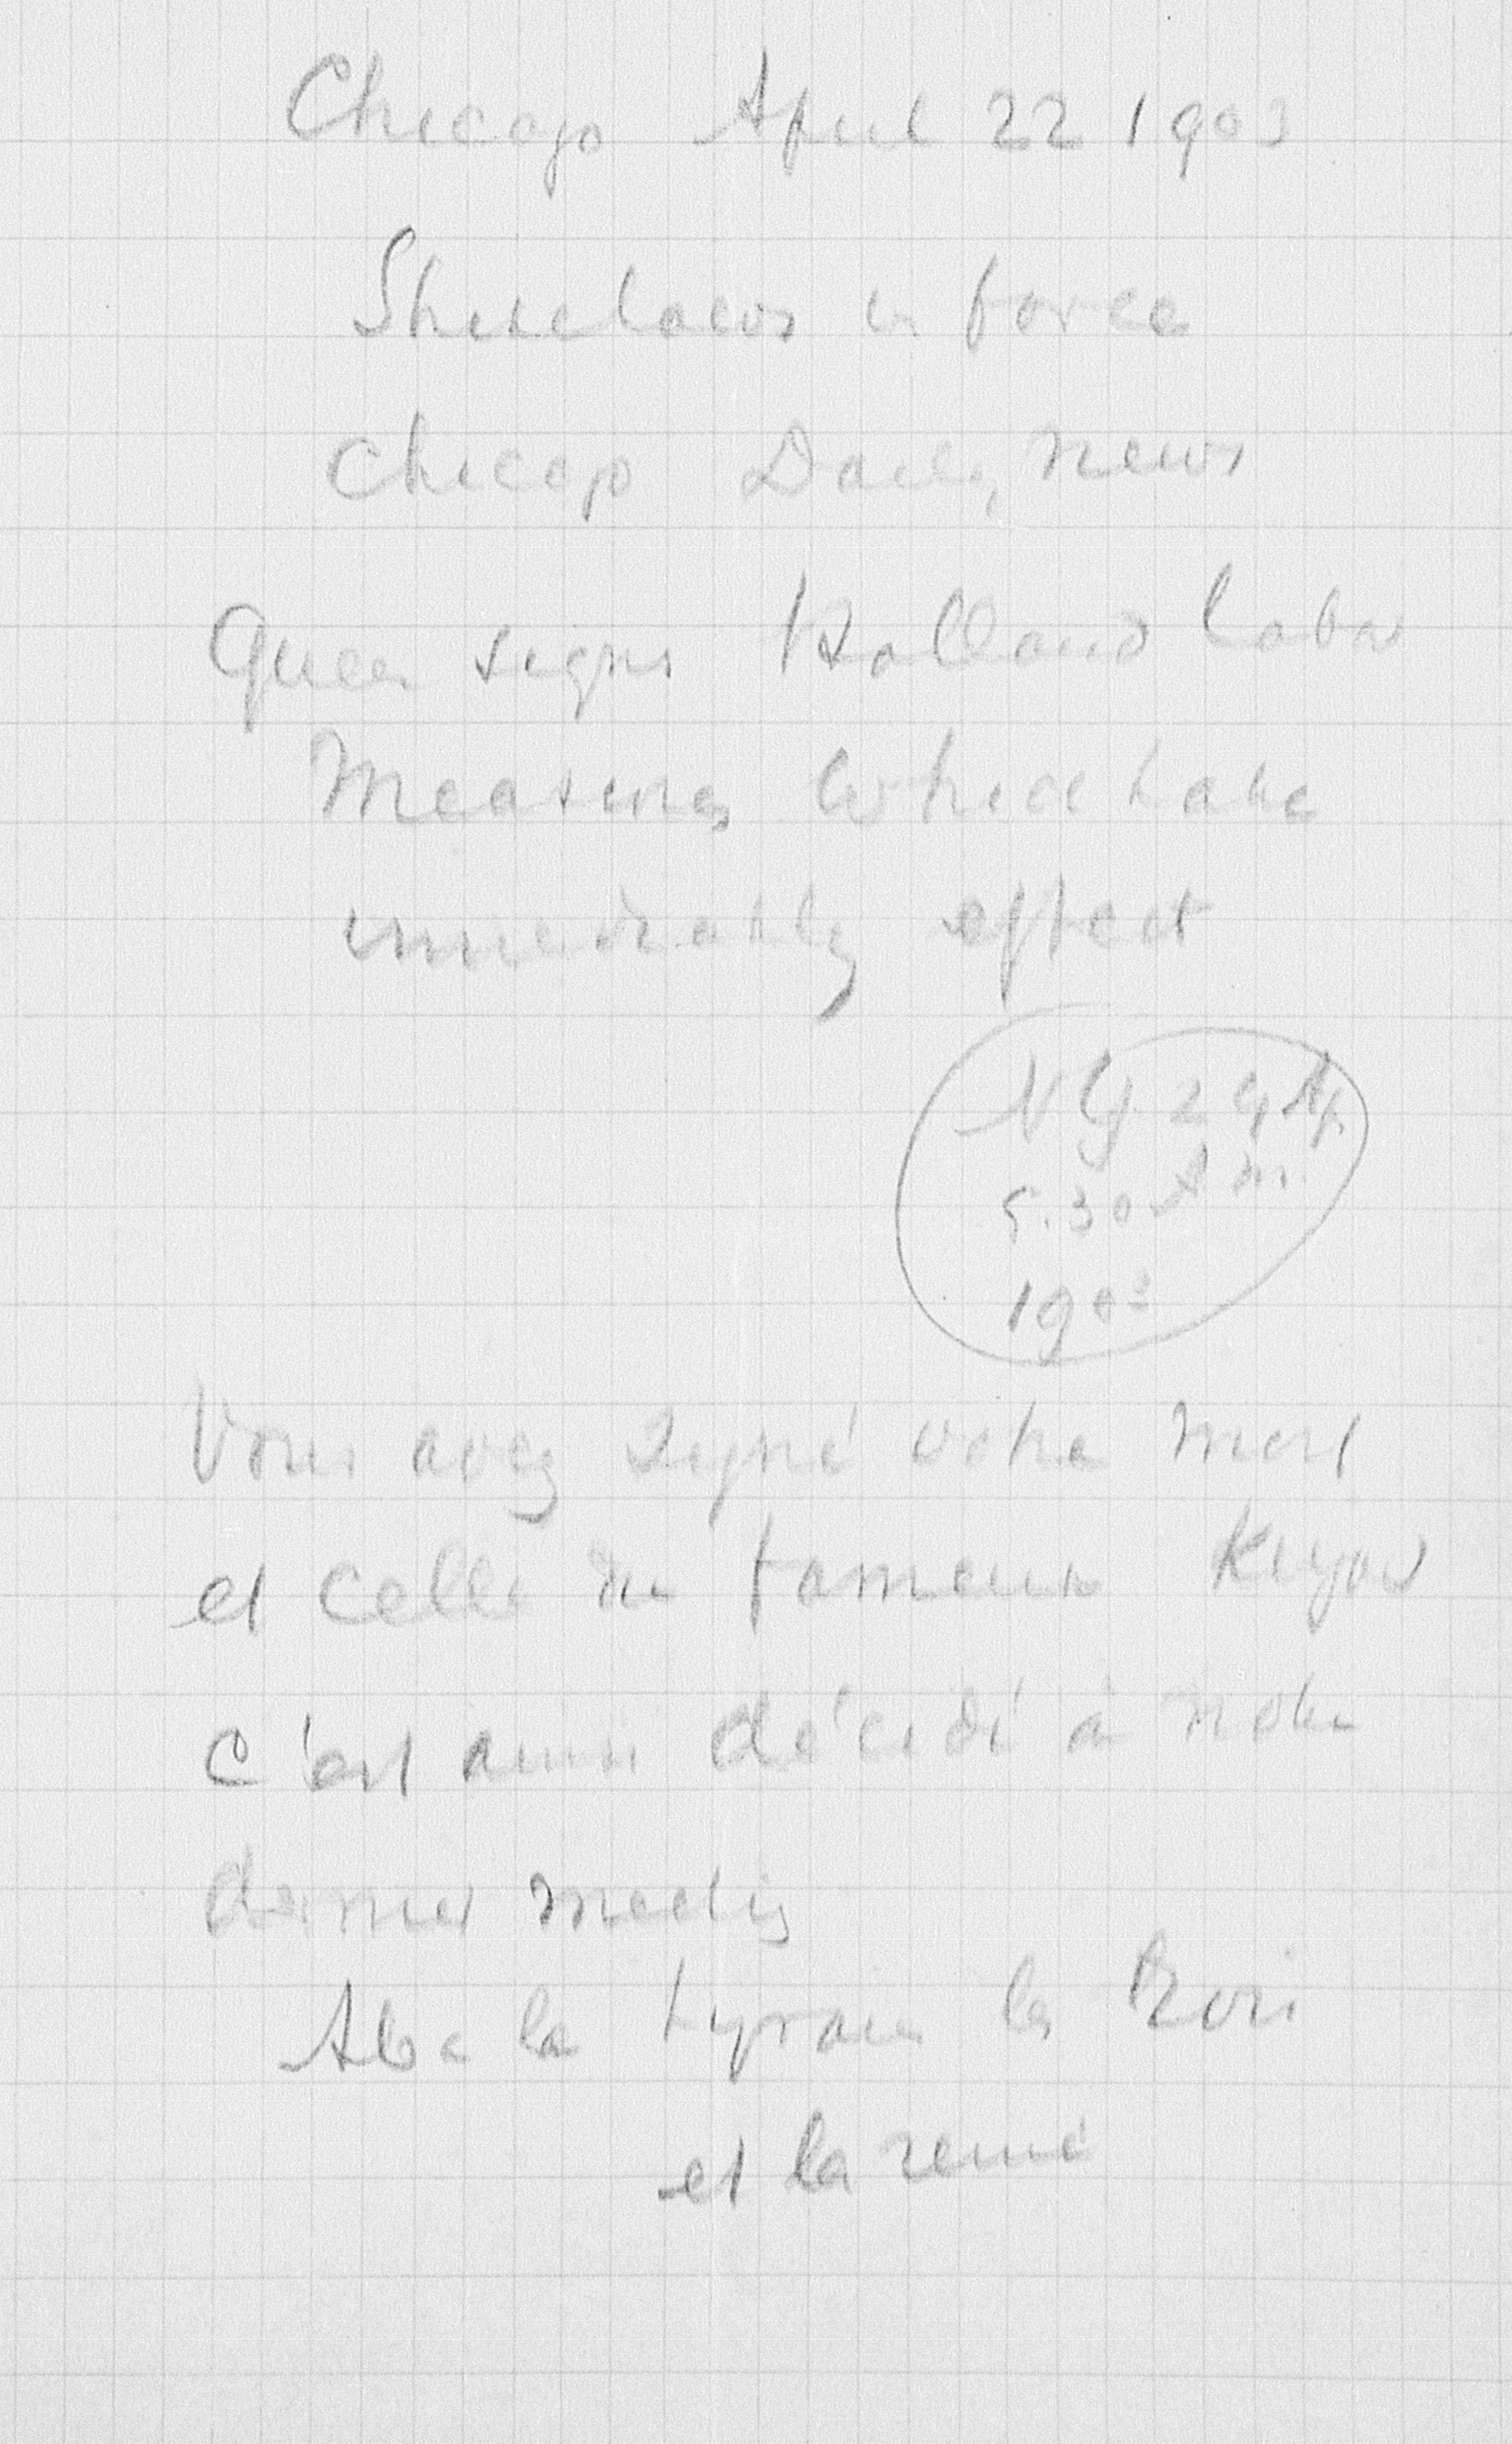 Chicago April 22 1903
Strike laws in force
Chicago Daily News
Queen signs Holland labor
Measures which take
immediatly effect
NY 24 Ap.
5.30 A m.
1903
Vous avez signé votre mort
et celle du fameux Kuyper
c'est ainsi décidé à notre
dernier meeting
A bas le tyran le Roi
et la reine